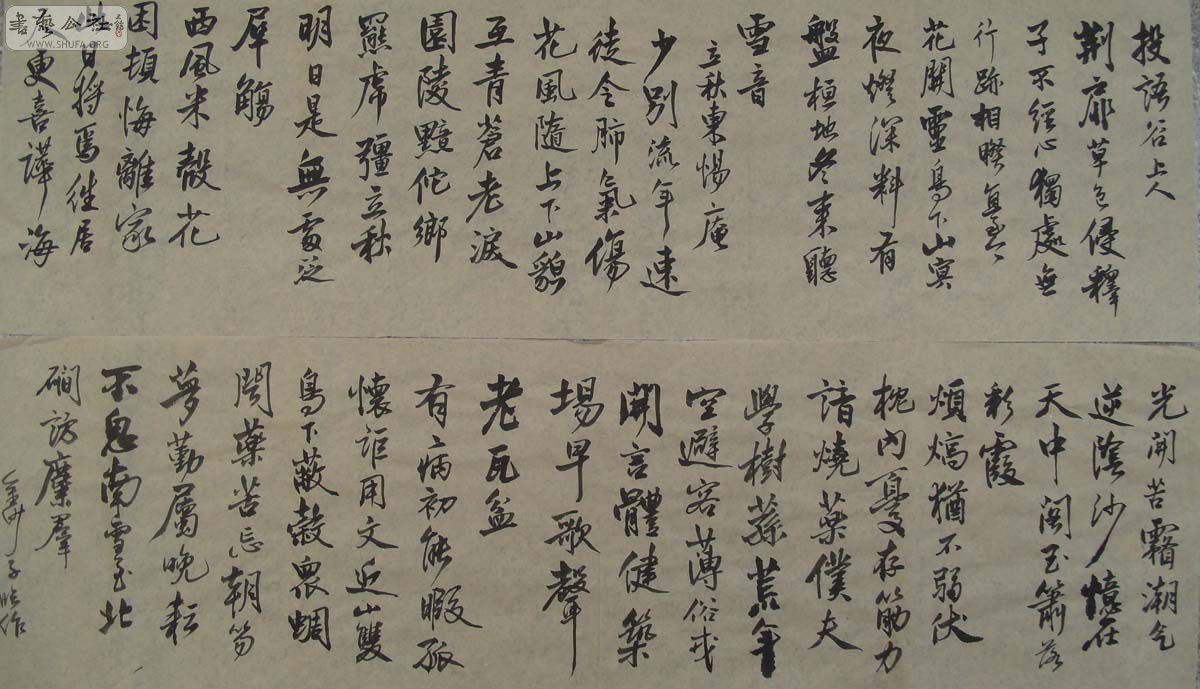 投語谷上人
荆扉草色侵釋
子不經心獨處無
行跡相暌
花開靈鳥下山冥
夜燈深料有
盤桓地冬來聽
雪音
立秋東惕庵
少別流年速
徒令肺氣傷
花風隨上下山貌
互青蒼老淚
園陵黯佗鄉
羆虎彊立秋
明日是無
犀觴
西風米殼花
困頓悔離家
日將焉徃居
更喜譁海
書藝公社
WWW.SHUFA.ORG
光開苦霧潮氣
逆陰沙憶在
天中閣玉簫落
彩霞
煩熇猶不弱伏
枕內憂存筋力
諳燒藥僕夫
學樹蓀荒年
空避客薄俗戎
開言體健築
場早歌聲
老瓦盆
有病初能暇孤
懷詎用文近山雙
鳥下蔽穀眾蜩
聞藥苦忘朝
夢勤屬晚耘
不息南雪至北
磵訪麋羣